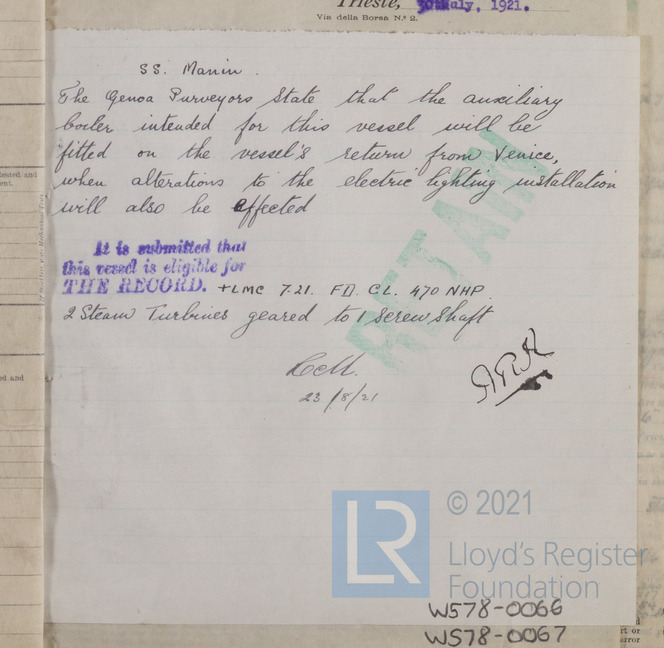 Trieste, 30th July, 1921.
Via della Borsa N.º 2.
SS. Manin.
The Genoa Purveyors State that the auxiliary
boiler intended for this vessel will be
fitted on the vessel's return from Venice,
when alterations to the electric lighting installation
will also be effected
It is submitted that
this vessel is eligible for
THE RECORD. +LMC 7.21. FD. CL. 470 NHP.
2 Steam Turbines geared to 1 Screw Shaft
23/8/21
RETAIN
LR
© 2021
Lloyd's Register
Foundation
W578-0066
W578-0067